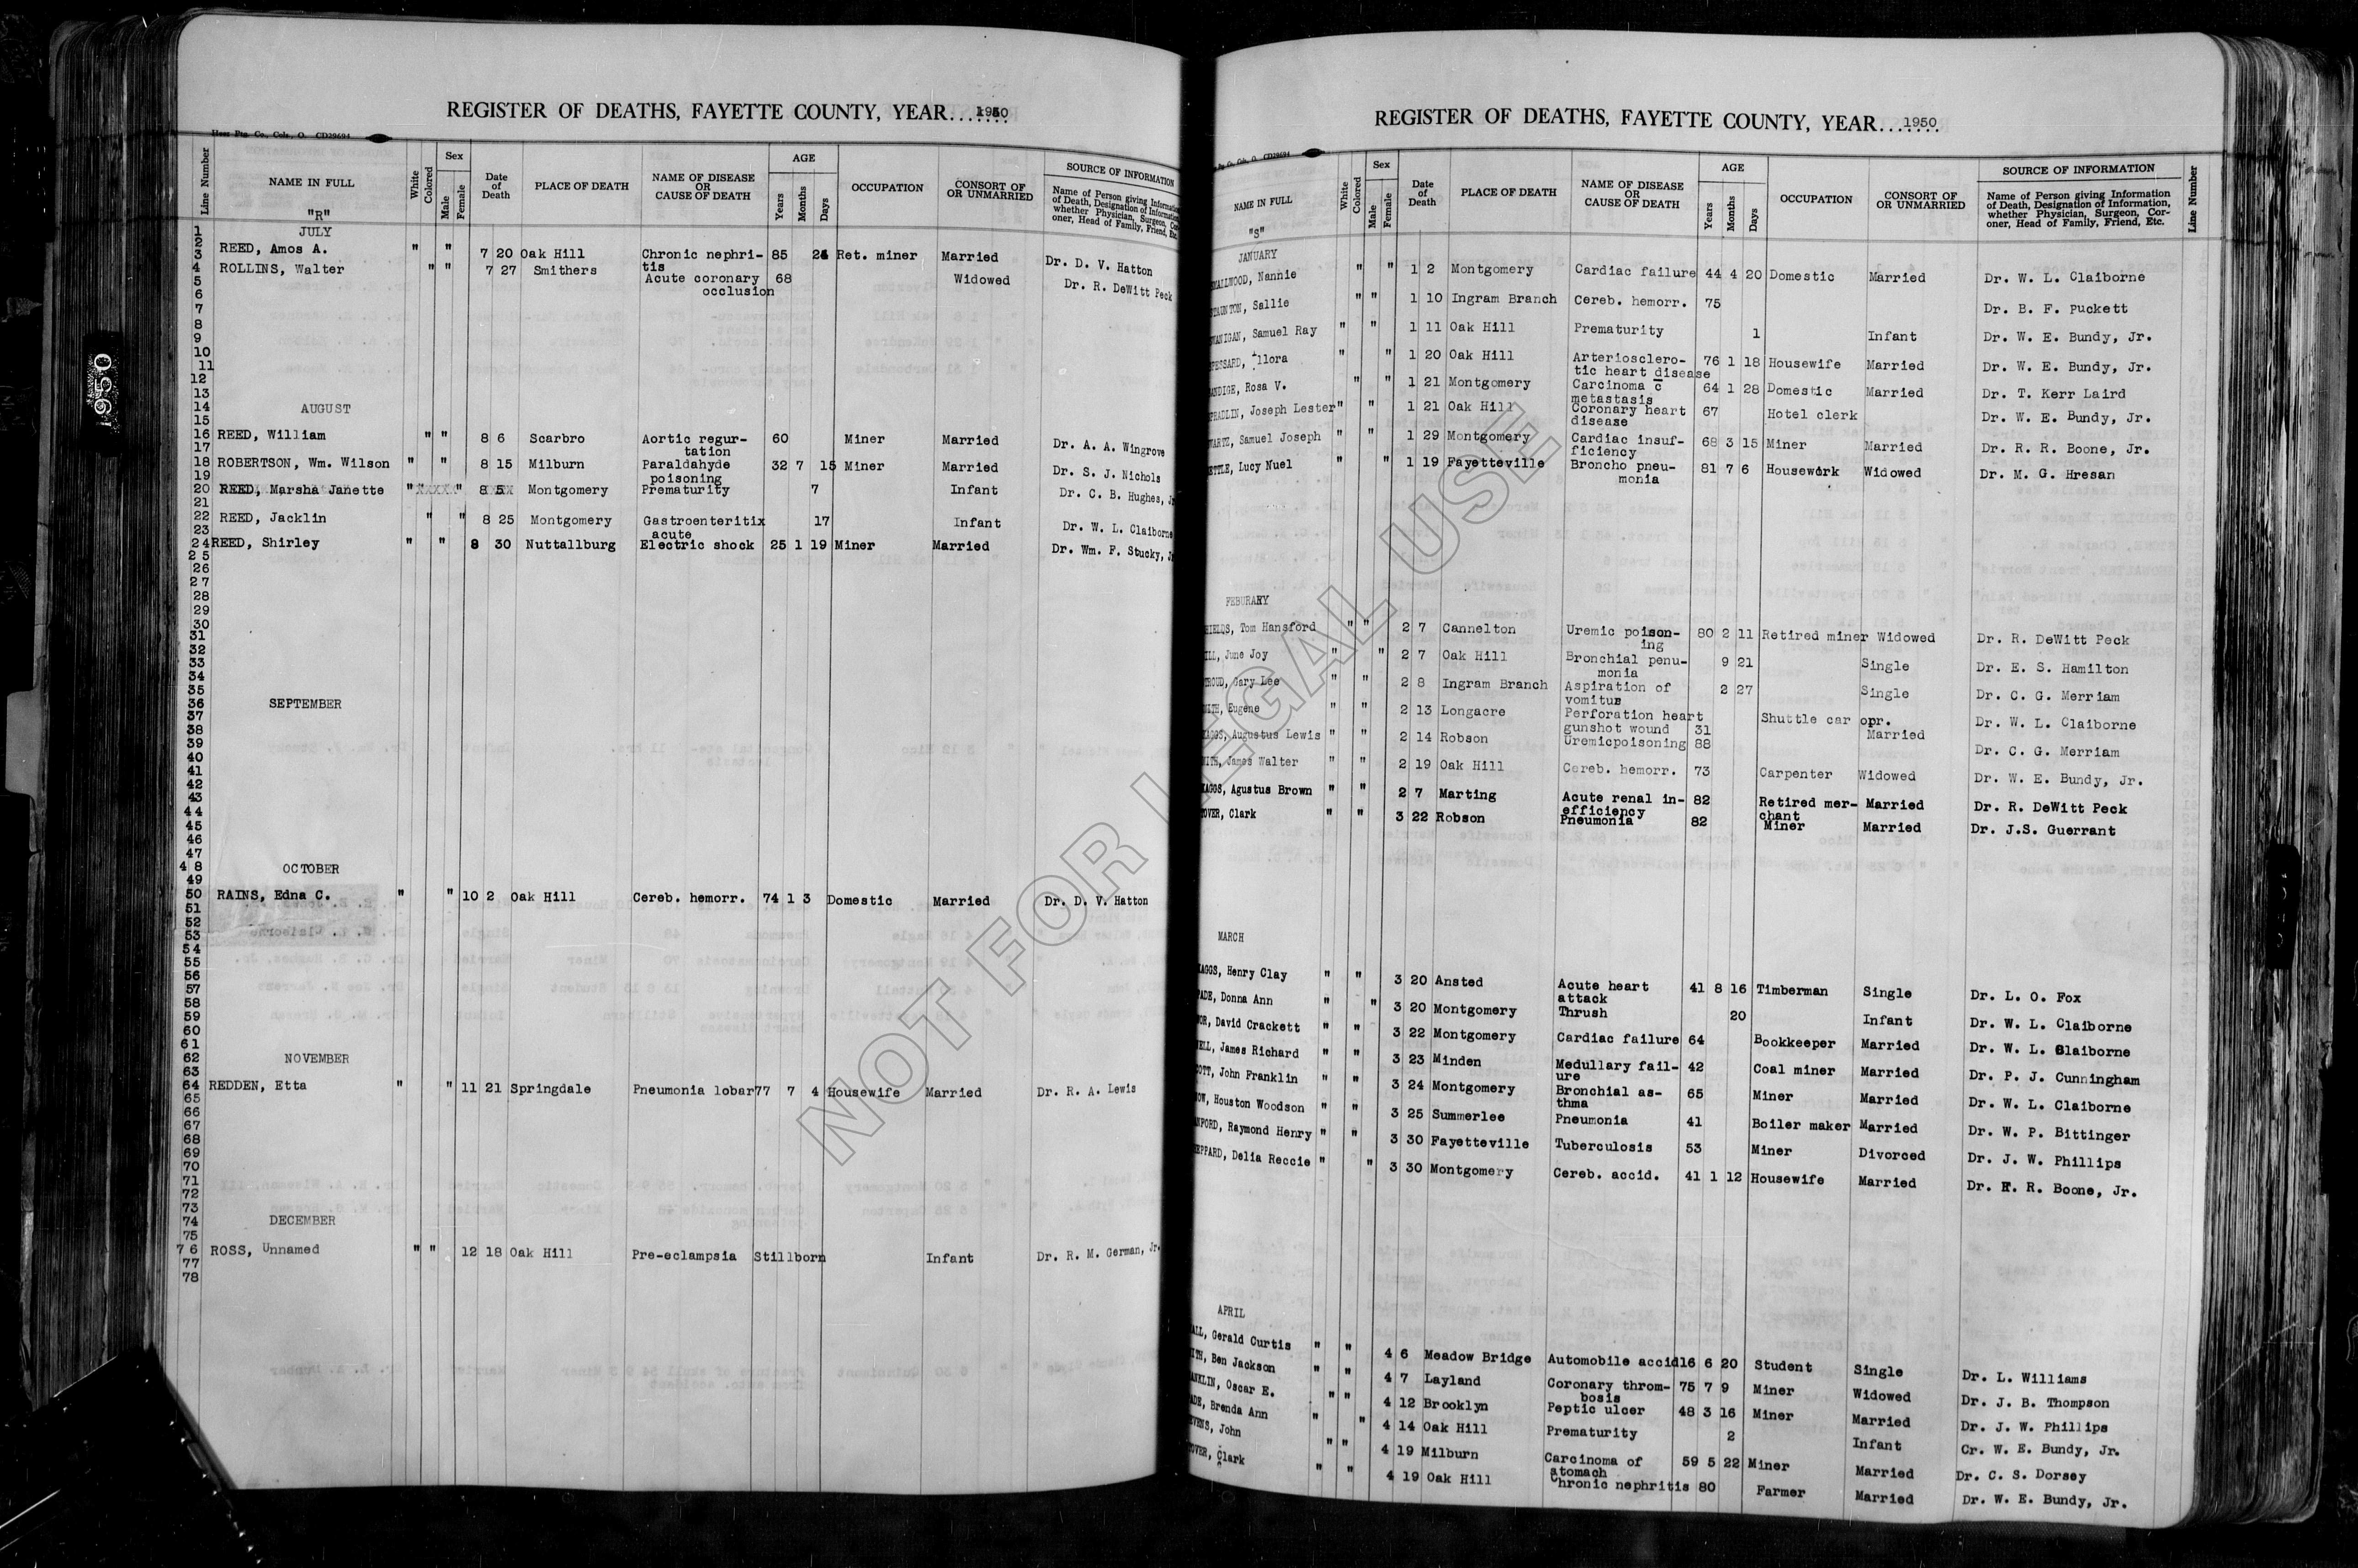 1950
REGISTER OF DEATHS, FAYETTE COUNTY, YEAR.......1950
Hess Ptg. Co., Cols., O. CD29694
Line Number
NAME IN FULL
"R"
White
Colored
Sex
Male
Female
Date of Death
PLACE OF DEATH
NAME OF DISEASE OR CAUSE OF DEATH
AGE
Years
Months
Days
OCCUPATION
CONSORT OF OR UNMARRIED
SOURCE OF INFORMATION
Name of Person giving Information of Death, Designation of Information, whether Physician, Surgeon, Coroner, Head of Family, Friend, Etc.
1 JULY
2
3 REED, Amos A. " " 7 20 Oak Hill Chronic nephri-tis 85 24 Ret. miner Married Dr. D. V. Hatton
4 ROLLINS, Walter " " 7 27 Smithers Acute coronary occlusion 68 Widowed Dr. R. DeWitt Peck
5
6
7
8
9
10
11
12
13
14 AUGUST
15
16 REED, William " " 8 6 Scarbro Aortic regur-tation 60 Miner Married Dr. A. A. Wingrove
17
18 ROBERTSON, Wm. Wilson " " 8 15 Milburn Paraldahyde poisoning 32 7 15 Miner Married Dr. S. J. Nichols
19
20 REED, Marsha Janette " " 8 5 Montgomery Prematurity 7 Infant Dr. C. B. Hughes, Jr
21
22 REED, Jacklin " " 8 25 Montgomery Gastroenteritix acute 17 Infant Dr. W. L. Claiborne
23
24 REED, Shirley " " 8 30 Nuttallburg Electric shock 25 1 19 Miner Married Dr. Wm. F. Stucky, J
25
26
27
28
29
30
31
32
33
34
35
36 SEPTEMBER
37
38
39
40
41
42
43
44
45
46
47
48 OCTOBER
49
50 RAINS, Edna C. " " 10 2 Oak Hill Cereb. hemorr. 74 1 3 Domestic Married Dr. D. V. Hatton
51
52
53
54
55
56
57
58
59
60
61
62 NOVEMBER
63
64 REDDEN, Etta " " 11 21 Springdale Pneumonia lobar 77 7 4 Housewife Married Dr. R. A. Lewis
65
66
67
68
69
70
71
72
73
74 DECEMBER
75
76 ROSS, Unnamed " " 12 18 Oak Hill Pre-eclampsia Stillborn Infant Dr. R. M. German, Jr.
77
78
REGISTER OF DEATHS, FAYETTE COUNTY, YEAR.......1950
Ptg. Co., Cols., O. CD29694
NAME IN FULL
"S"
White
Colored
Sex
Male
Female
Date of Death
PLACE OF DEATH
NAME OF DISEASE OR CAUSE OF DEATH
AGE
Years
Months
Days
OCCUPATION
CONSORT OF OR UNMARRIED
SOURCE OF INFORMATION
Name of Person giving Information of Death, Designation of Information, whether Physician, Surgeon, Coroner, Head of Family, Friend, Etc.
Line Number
JANUARY
MALLWOOD, Nannie " " 1 2 Montgomery Cardiac failure 44 4 20 Domestic Married Dr. W. L. Claiborne
STAUNTON, Sallie " " 1 10 Ingram Branch Cereb. hemorr. 75 Dr. B. F. Puckett
ANIGAN, Samuel Ray " " 1 11 Oak Hill Prematurity 1 Infant Dr. W. E. Bundy, Jr.
PESSARD, Allora " " 1 20 Oak Hill Arterioscléro-tic heart disease 76 1 18 Housewife Married Dr. W. E. Bundy, Jr.
ANDIGE, Rosa V. " " 1 21 Montgomery Carcinoma c metastasis 64 1 28 Domestic Married Dr. T. Kerr Laird
PRADLIN, Joseph Lester " " 1 21 Oak Hill Coronary heart disease 67 Hotel clerk Dr. W. E. Bundy, Jr.
WARTZ, Samuel Joseph " " 1 29 Montgomery Cardiac insuf-ficiency 68 3 15 Miner Married Dr. R. R. Boone, Jr.
ETTLE, Lucy Nuel " " 1 19 Fayetteville Broncho pneu-monia 81 7 6 Housework Widowed Dr. M. G. Hresan
FEBURARY
HIELDS, Tom Hansford " " 2 7 Cannelton Uremic poison-ing 80 2 11 Retired miner Widowed Dr. R. DeWitt Peck
ILL, June Joy " " 2 7 Oak Hill Bronchial penu-monia 9 21 Single Dr. E. S. Hamilton
TROUD, Gary Lee " " 2 8 Ingram Branch Aspiration of vomitus 2 27 Single Dr. C. G. Merriam
MITH, Eugene " " 2 13 Longacre Perforation heart gunshot wound 31 Shuttle car opr. Married Dr. W. L. Claiborne
KAGGS, Augustus Lewis " " 2 14 Robson Uremicpoisoning 88 Dr. C. G. Merriam
MITH, James Walter " " 2 19 Oak Hill Cereb. hemorr. 73 Carpenter Widowed Dr. W. E. Bundy, Jr.
KAGGS, Agustus Brown " " 2 7 Marting Acute renal in-efficiency 82 Retired mer-chant Married Dr. R. DeWitt Peck
TOVER, Clark " " 3 22 Robson Pneumonia 82 Miner Married Dr. J.S. Guerrant
MARCH
KAGGS, Henry Clay " " 3 20 Ansted Acute heart attack 41 8 16 Timberman Single Dr. L. O. Fox
PADE, Donna Ann " " 3 20 Montgomery Thrush 20 Infant Dr. W. L. Claiborne
OR, David Crackett " " 3 22 Montgomery Cardiac failure 64 Bookkeeper Married Dr. W. L. Claiborne
ELL, James Richard " " 3 23 Minden Medullary fail-ure 42 Coal miner Married Dr. P. J. Cunningham
COTT, John Franklin " " 3 24 Montgomery Bronchial as-thma 65 Miner Married Dr. W. L. Claiborne
OW, Houston Woodson " " 3 25 Summerlee Pneumonia 41 Boiler maker Married Dr. W. P. Bittinger
NFORD, Raymond Henry " " 3 30 Fayetteville Tuberculosis 53 Miner Divorced Dr. J. W. Phillips
EPPARD, Delia Reccie " " 3 30 Montgomery Cereb. accid. 41 1 12 Housewife Married Dr. R. R. Boone, Jr.
APRIL
ALL, Gerald Curtis " " 4 6 Meadow Bridge Automobile accid 16 6 20 Student Single Dr. L. Williams
ITH, Ben Jackson " " 4 7 Layland Coronary throm-bosis 75 7 9 Miner Widowed Dr. J. B. Thompson
ANKLIN, Oscar E. " " 4 12 Brooklyn Peptic ulcer 48 3 16 Miner Married Dr. J. W. Phillips
ADE, Brenda Ann " " 4 14 Oak Hill Prematurity 2 Infant Cr. W. E. Bundy, Jr.
EVENS, John " " 4 19 Milburn Carcinoma of stomach 59 5 22 Miner Married Dr. C. S. Dorsey
OVER, Clark " " 4 19 Oak Hill Chronic nephritis 80 Farmer Married Dr. W. E. Bundy, Jr.
NOT FOR LEGAL USE